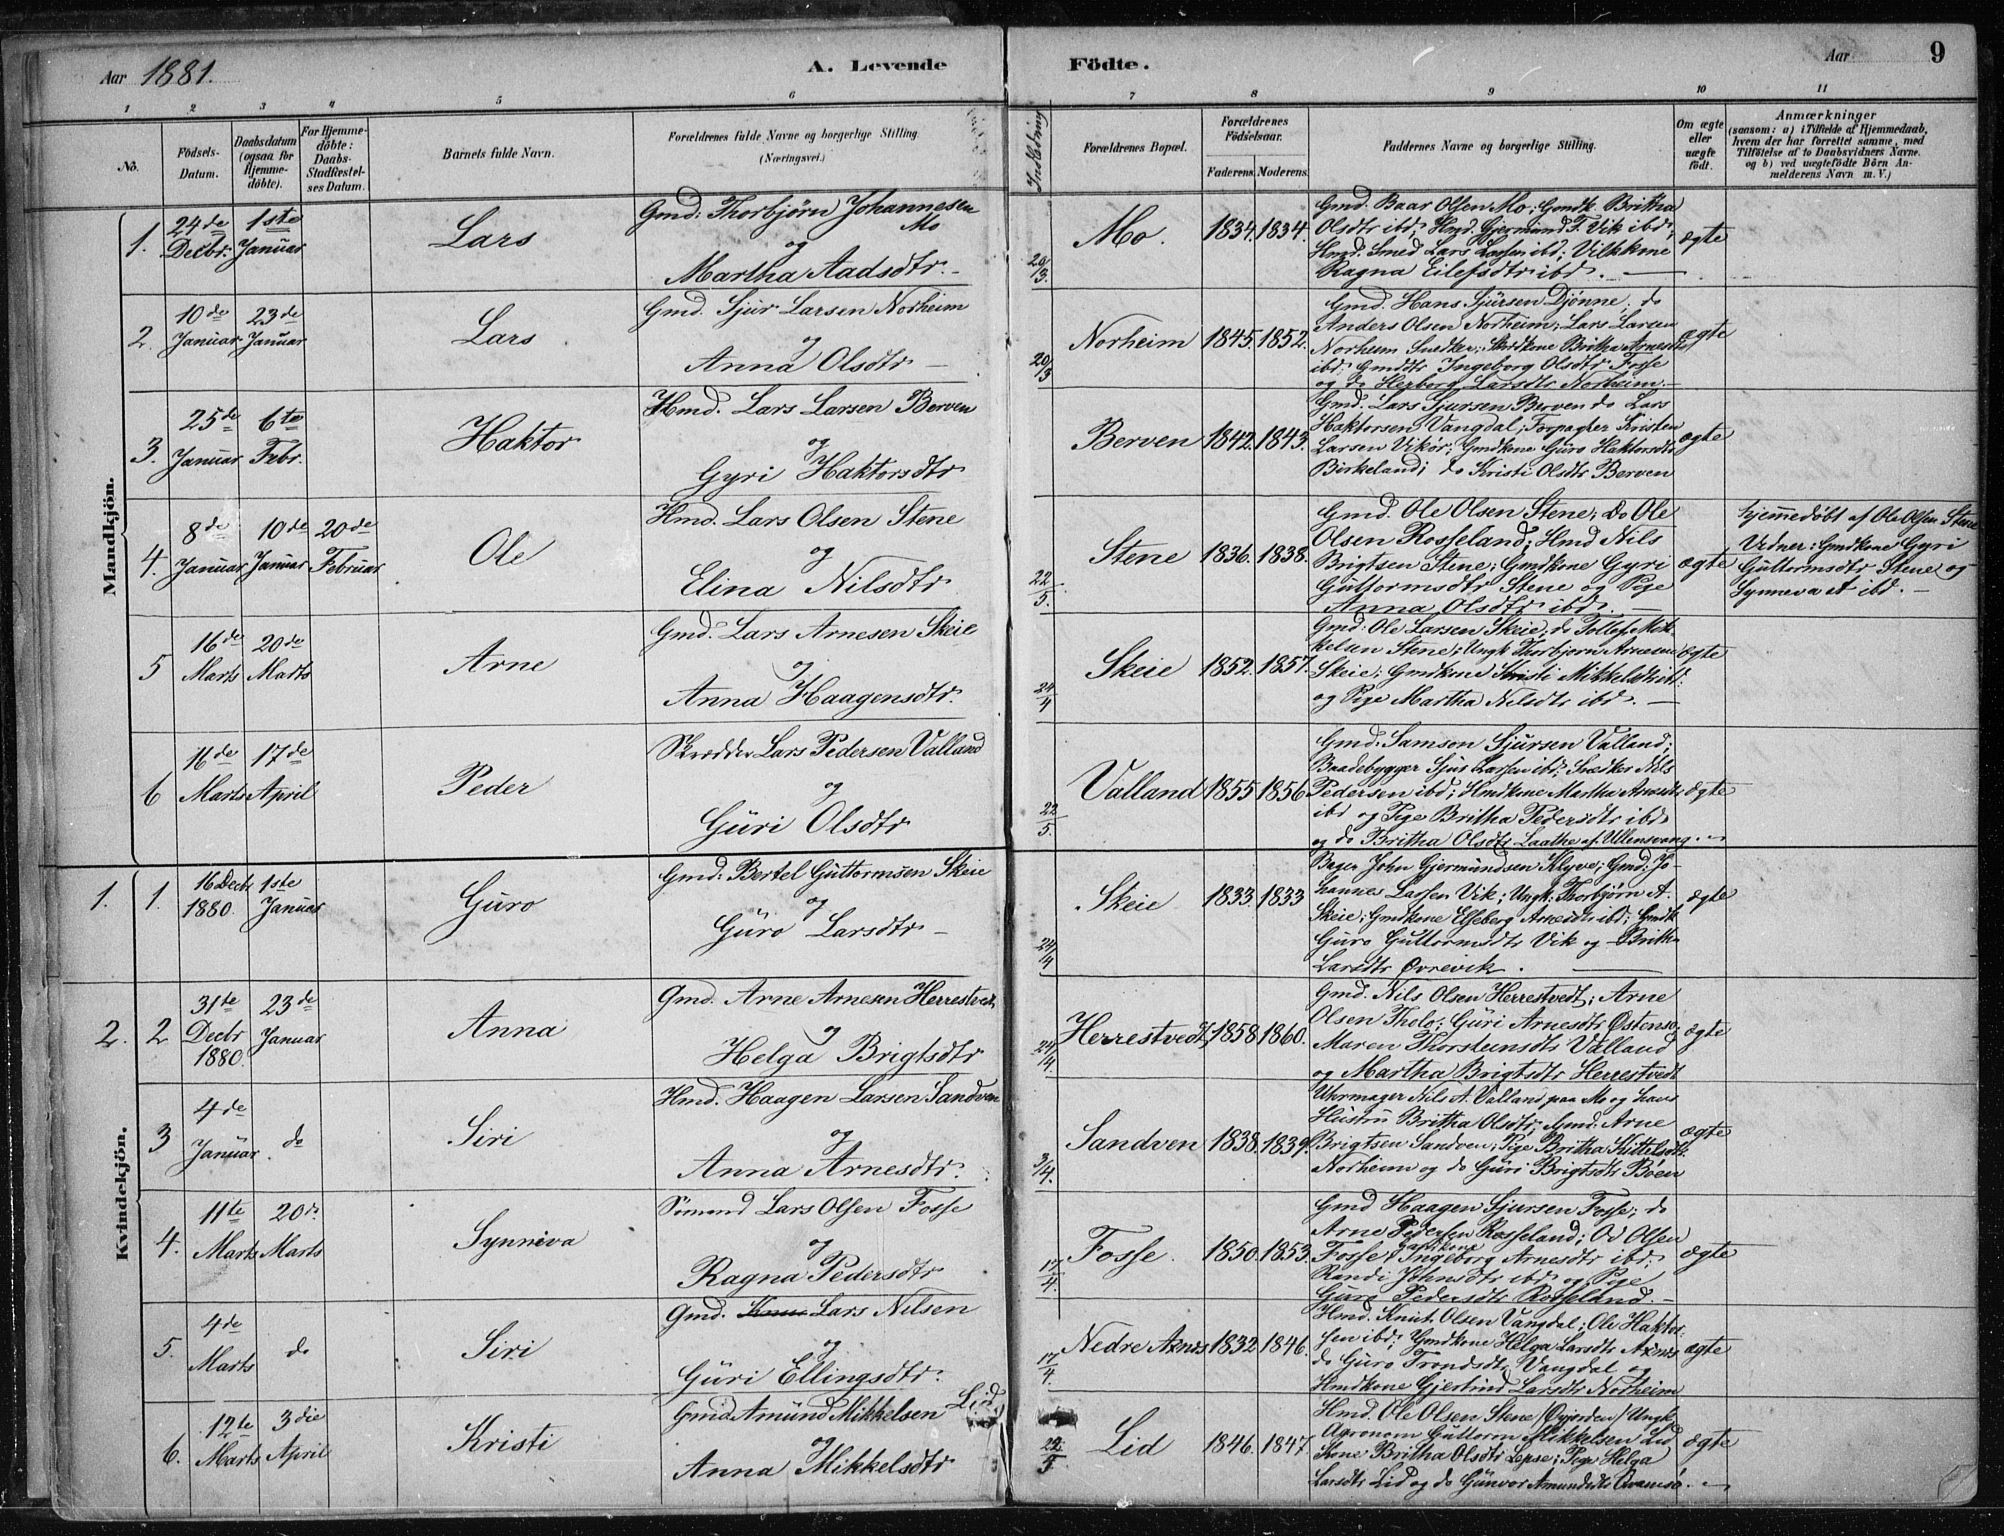 Aar 1881.
A. Levende Födte.
Aar 9
1 2 3 4 5 6 7 8 9 10 11
No.
Födsels-Datum.
Daabsdatum (ogsaa for Hjemme-döbte).
For Hjemme-döbte: Daabs-Stadfæstel-ses Datum.
Barnets fulde Navn.
Forældrenes fulde Navne og borgerlige Stilling.
(Næringsvei.)
Forældrenes Bopæl.
Forældrenes Födselsaar.
Faderens. Moderens.
Faddernes Navne og borgerlige Stilling.
Om ægte eller uægte födt.
Anmærkninger
(saasom: a) i Tilfælde af Hjemmedaab, hvem der har forrettet samme, med Tilföielse af to Daabsvidners Navne. og b) ved uægtefödte Börn An-melderens Navn m. V.)
Mandkjön.
1. 24de Decbr. 1ste Januar
Lars
Gmd: Thorbjörn Johannesen Mo
og
Martha Aadsdtr.
20/3
Mo. 1834. 1834.
Gmd. Baar Olsen Mo; Gmdk. Britha
Olsdtr ibd; Hmd. Gjermund F. Vik ibd;
Hmd. Smed Lars Larsen ibd;
Ragna Eilefsdtr ibd.
ægte
2. 10de Januar 23de Januar
Lars
Gmd. Sjur Larsen Norheim
og
Anna Olsdtr
20/3
Norheim 1845. 1852.
Gmd. Hans Sjursen Djönne. do
Anders Olsen Norheim; Lars Larsen
Norheim Snedker; Britha Arnesdtr
ibd; Gmddtr Ingeborg Olsdtr Fosse
og do Herborg Larsdtr Norheim.
ægte
3. 25de Januar 6te Febr.
Haktor
Hmd. Lars Larsen Berven
og
Gyri Haktorsdtr
Berven 1842. 1843.
Gmd. Lars Sjursen Berven do Lars
Haktorsen Vangdal; Forpagter Kristen
Larsen Vikör; Gmdkone Guro Haktorsdtr
Birkeland; do Kristi Olsdtr Berven
ægte
4. 8de Januar 10de Januar 20de Februar
Ole
Hmd. Lars Olsen Stene
og
Elina Nilsdtr
22/5.
Stene 1836. 1838.
Gmd. Ole Olsen Stene; do Ole
Olsen Rosseland; Hmd Nils
Brigtsen Stene; Gmdkone Gyri
Guttormsdtr Stene og Pige
Anna Olsdtr ibd.
ægte
hjemmedöbt af Ole Olsen Stene
Vidner: Gmdkone Gyri
Guttormsdtr Stene og
Synneva ibd.
5 16de Marts 20de Marts
Arne
Gmd. Lars Arnesen Skeie
og
Anna Haagensdtr.
24/4
Skeie 1852. 1857.
Gmd: Ole Larsen Skeie; do Tollef Mik-
kelsen Stene; Ungk Thorbjørn Arnesen
Skeie; Gmdkone Kristi Mikkelsdtr ibd.
og Pige Martha Nilsdtr ibd.
ægte
6 16de Marts 17de April
Peder
Skrædder Lars Pedersen Valland
og
Guri Olsdtr
22/5.
Valland 1855 1856
Gmd. Samson Sjursen Valland;
Baadebygger Sjur Larsen ibd; Snedker Nils
Pedersen ibd; Hmdkone Martha Arnesdtr
ibd og Pige Britha Pedersdtr ibd
og do Britha Olsdtr Laathe af Ullensvang.
ægte
Kvindekjön.
1. 1. 16 Decbr 1880. 1ste Januar
Guro
Gmd: Bertel Guttormsen Skeie
og
Guro Larsdtr
24/4
Skeie 1833. 1833
John Gjermundsen Klyve; Gmd. Jo-
hannes Larsen Vik; Ungk. Thorbjörn A.
Skeie; Gmdkone Elseberg Arnesdtr ibd; Gmdk
Guro Guttormsdtr Vik og Britha
Larsdtr Övrevik.
ægte
2. 2 31te Decbr 1880. 23de Januar
Anna
Gmd. Arne Arnesen Herrestvedt
og
Helga Brigtsdtr
24/4.
Herrestvedt 1858 1860.
Gmd. Nils Olsen Herrestvedt; Arne
Olsen Tholo; Guri Arnesdtr Östensö
Maren Thorsteinsdtr Valland
og Martha Brigtsdtr Herrestvedt
ægte
3 4de Januar do
Siri
Hmd. Haagen Larsen Sandven
og
Anna Arnesdtr.
3/4.
Sandven 1838. 1839.
Uhrmager Nils A. Valland paa Mo og hans
Hustru Britha Olsdtr; Gmd. Arne
Brigtsen Sandven; Pige Britha Kittelsdtr
Norheim og do Guri Brigtsdtr Böen
ægte
4. 11te Marts 20de Marts
Synneva
Sömand Lars Olsen Fosse
og
Ragna Pedersdtr
17/4.
Fosse. 1850. 1853.
Gmd Haagen Sjursen Fosse; do
Arne Pedersen Rosseland; Od Olsen
Fosse; Ingeborg Arnesdtr ibd;
Randi Johnsdtr ibd og Pige
Guro Pedersdtr Rosseland.
ægte
5. 4de Marts do
Siri
Gmd. Lars Nilsen
og
Guri Ellingsdtr.
17/4.
Nedre Axnes 1832 1846.
Hmd. Knut Olsen Vangdal; Ole Haktor-
sen ibd; Gmdkone Helga Larsdtr Axnes
do Guro Trondsdtr Vangdal og
Hmdkone Gjertrud Larsdtr Norheim
ægte
6. 12te Marts 3die April
Kristi
Gmd Amund Mikkelsen Lid
og
Anna Mikkelsdtr
22/5
Lid 1846. 1847.
Hmd. Ole Olsen Stene /Gjerden/ Ungk.
Agronom Guttorm Mikkelsen Lid
Kone Britha Olsdtr Lepse; Pige Helga
Larsdtr Lid og do Gunvor Amundsdtr Qvamsö.
ægte